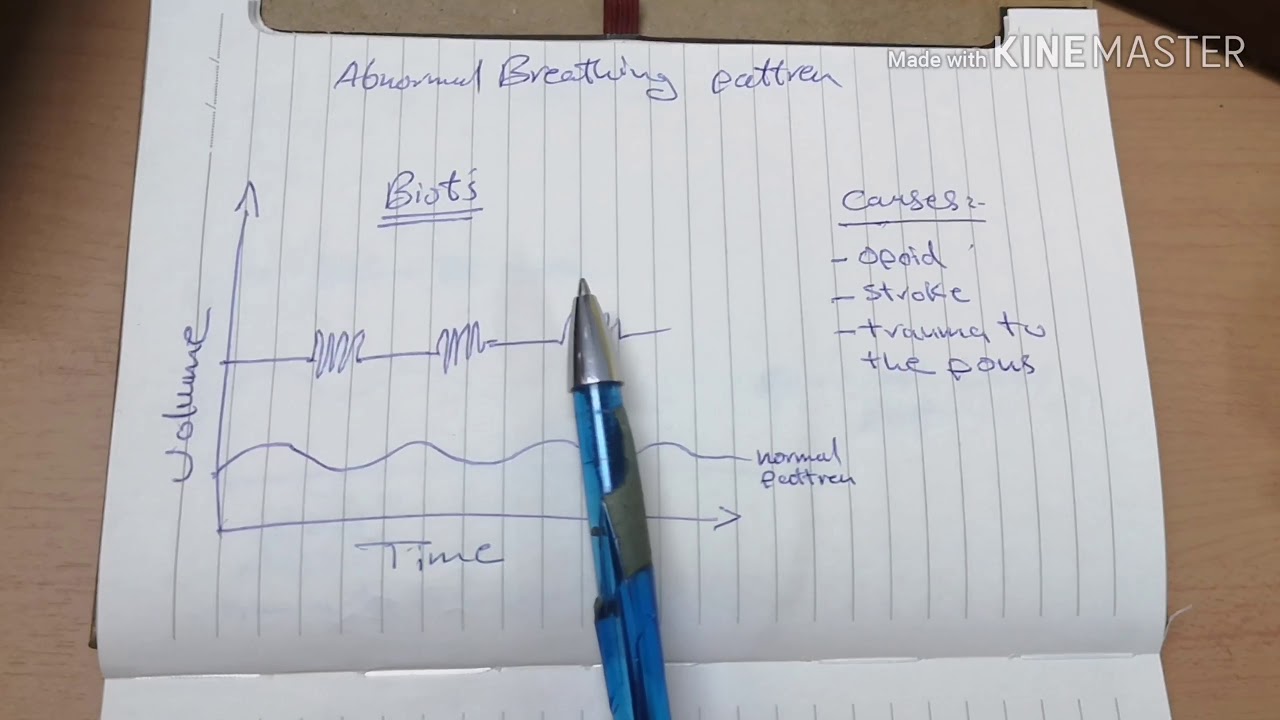 Made with KINEMASTER
Abnormal Breathing pattren
Biot's
Causes:-
- opoid
- stroke
- trauma to
the pons
Volume
normal
pattren
Time